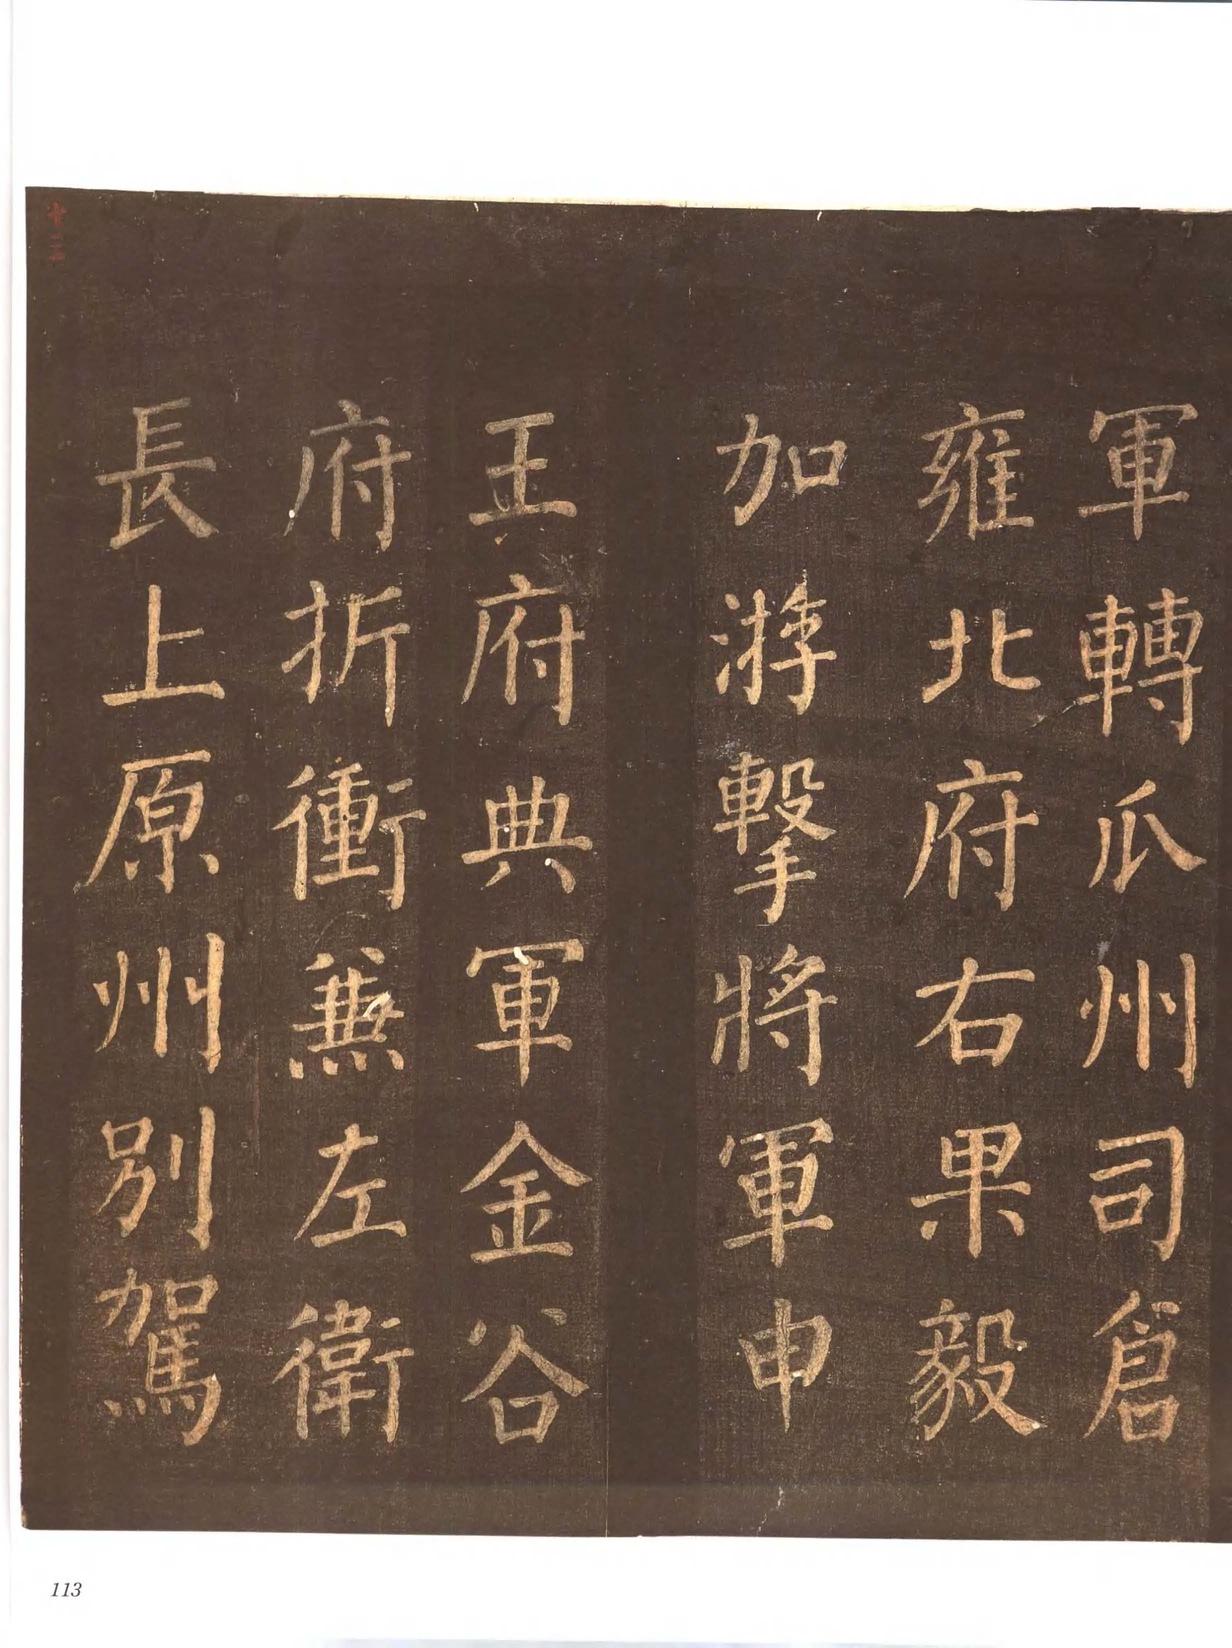 軍轉瓜州司倉
雍北府右果毅
加游擊將軍申
王府典軍金谷
府折衝兼左衛
長上原州別駕
十三
113